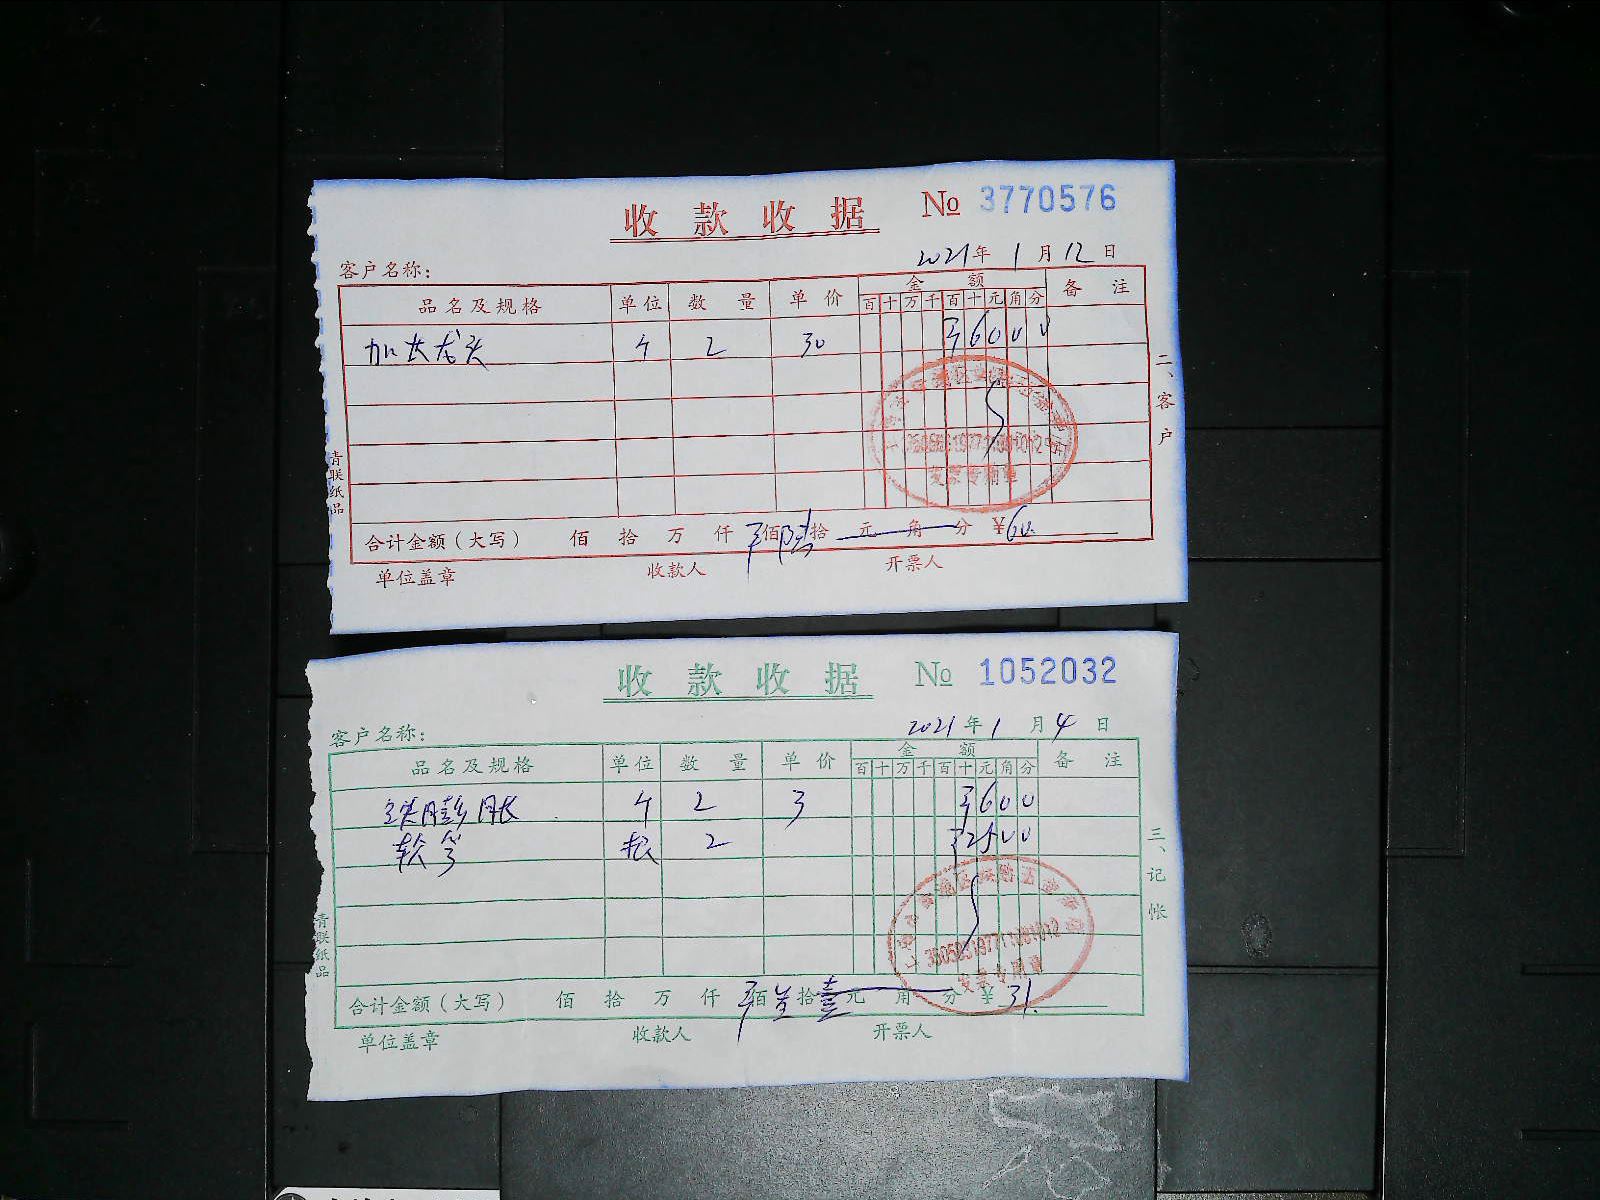 收款收据 № 3770576
2021年1月12日
客户名称：
品名及规格 单位 数量 单价 金额 备注
百十万千百十元角分
加长龙头 个 2 30 ¥6000
二、客户
发票专用章
青联纸品
合计金额（大写） 佰 拾 万 仟 ¥佰陆拾 元 角 分 ¥60.
单位盖章 收款人 开票人
收款收据 № 1052032
2021年1月4日
客户名称：
品名及规格 单位 数量 单价 金额 备注
百十万千百十元角分
膨胀 个 2 3 ¥600
软管 根 2 ¥2500
三、记帐
发票专用章
青联纸品
合计金额（大写） 佰 拾 万 仟 ¥佰叁拾壹元 角 分 ¥31.
单位盖章 收款人 开票人